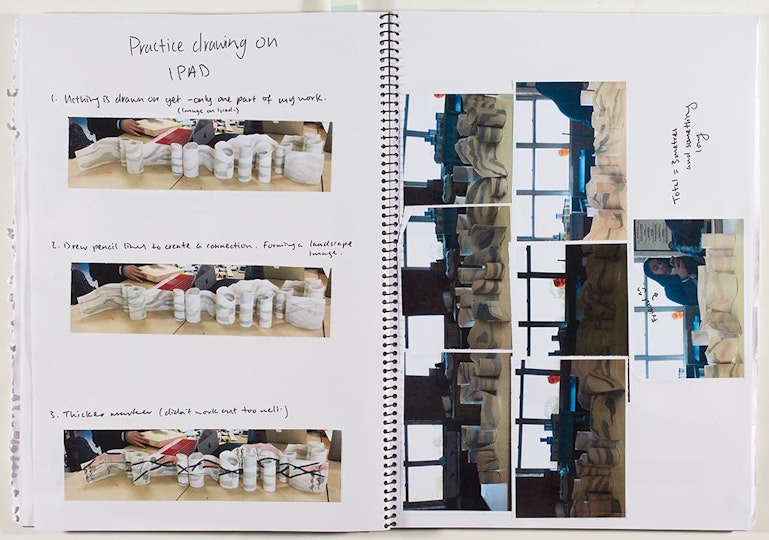 Practice drawing on
IPAD
1. Nothing is drawn on yet - only one part of my work.
(Image on Ipad.)
2. Drew pencil lines to create a connection. Forming a landscape
image.
3. Thicker marker (didn't work out too well.)
Total = 3 metres
and something
long